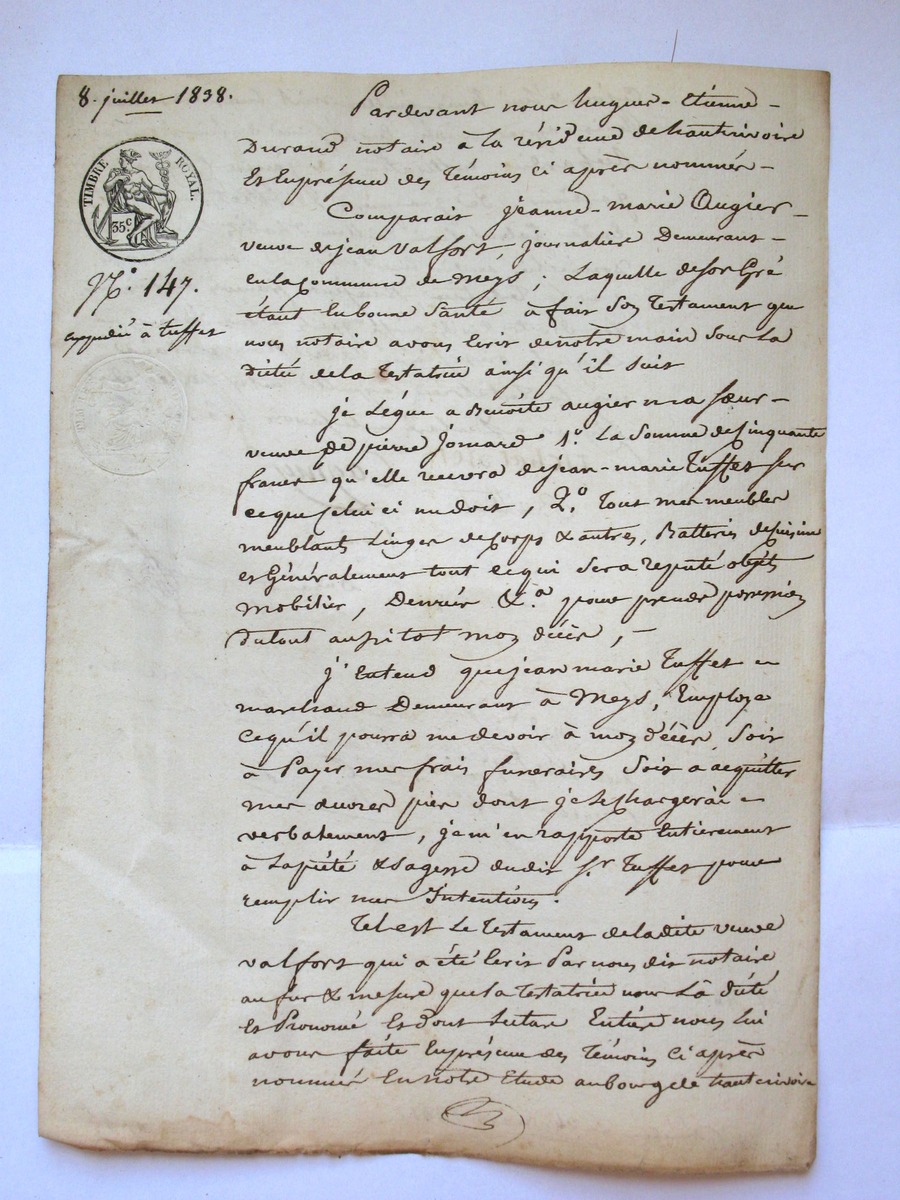 8. juillet 1838.
TIMBRE ROYAL.
35c
N.o 147.
expédié à tuffet
Pardevant nous hugues-Etienne-
Durand notaire à la résidence de hautrivoire
Et En présence des Témoins ci après nommés-
Comparait jeanne-marie Augier-
veuve de jean Valfort, journalière Demeurant-
en la Commune de Meys; Laquelle de son Gré
étant En bonne Santé à fait Son Testament que
nous notaire avons Ecrit de notre main Sous La
Dictée de la Testatrice ainsi qu'il Suit
je Lègue a Benoite augier ma Sœur-
veuve de pierre Jomard 1o. La Somme de Cinquante
francs qu'elle recevra de jean-marie Tuffet Sur
ce que Celui ci me doit, 2o. Tous mes meubles
meublants Linges de Corps & autres, Batteries de Cuisine
et Généralement tout ce qui Sera réputé objets
Mobilier, Denrées &.a pour prendre possession
du tout aussitot mon décès,-
j'Entend que jean marie Tuffet
marchand Demeurant à Meys, Employe
Ce qu'il pourra me devoir à mon décès, Soit
à Payer mes frais funeraires Soit a acquitter
mes œuvres pies dont je le Chargerai
verbalement, je m'en rapporte Entierement
à La piété & Sagesse du dit Sr. Tuffet pour
remplir mes Intentions.
Tel est Le Testament de ladite veuve
valfort qui a été Ecrit Par nous dit notaire
au fur & mesure que la Testatrice nous L'à dicté
Et Prononcé Et dont Lecture Entière nous lui
avons faite En présence des Témoins Ci après
nommés En notre Etude au bourg de hautrivoire